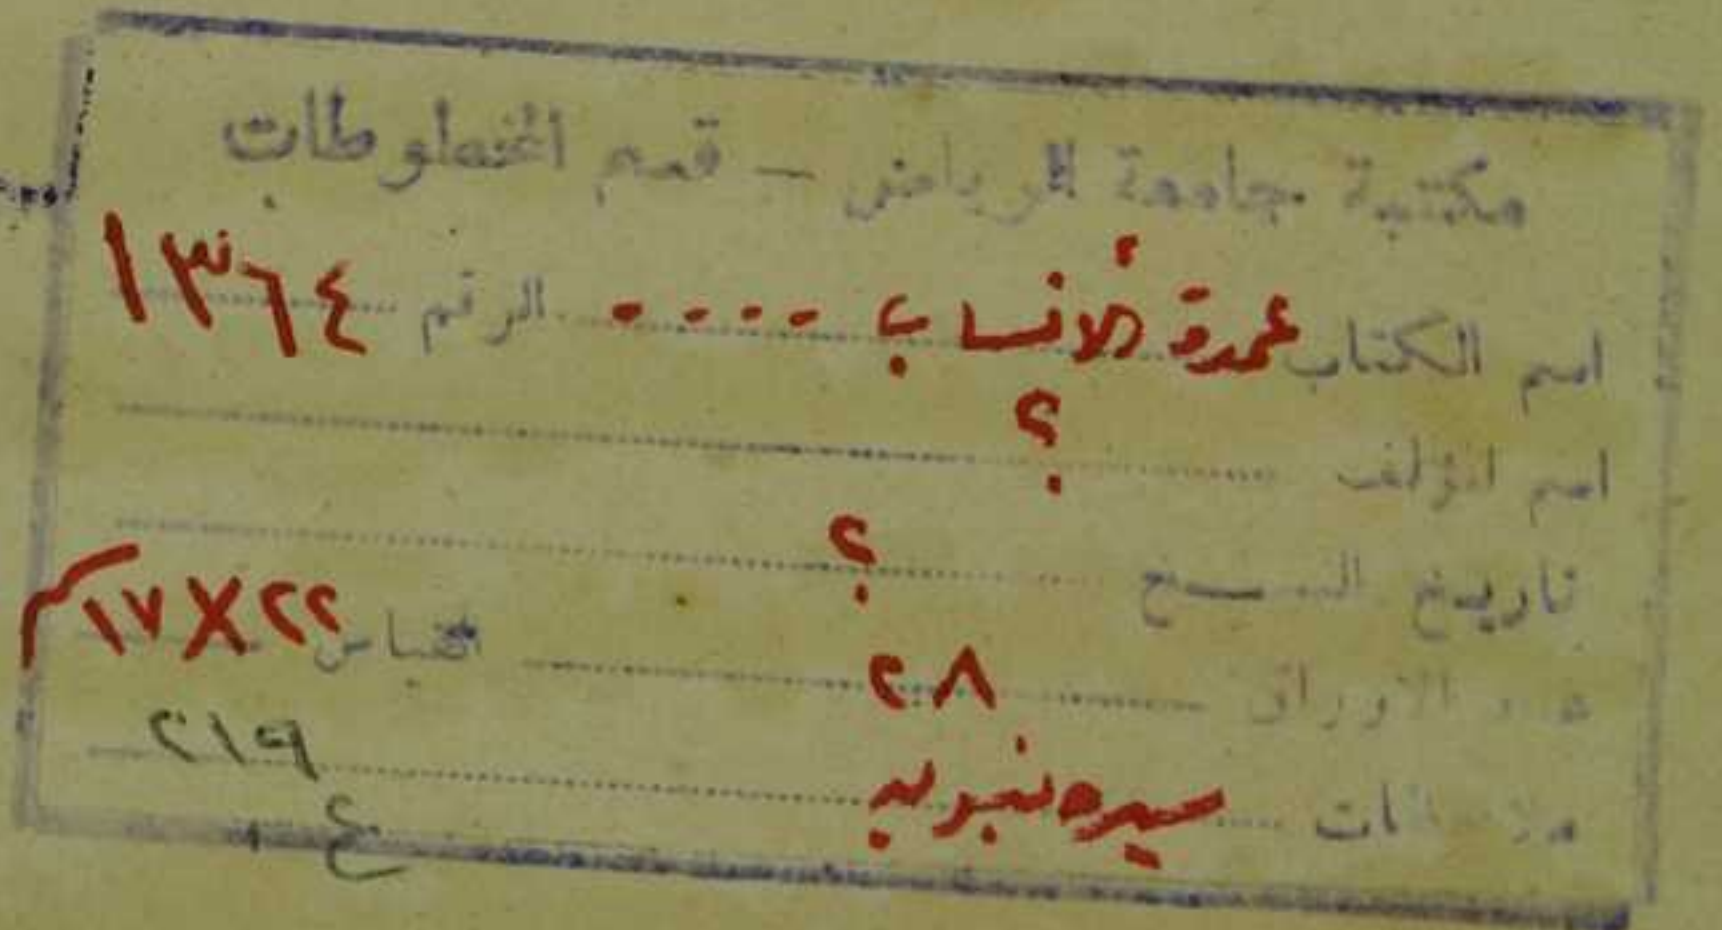 مكتبة جامعة الرياض - قسم المخطوطات
اسم الكتاب عمدة الأنساب .... الرقم ١٣٦٤
اسم المؤلف ؟
تاريخ النسخ ؟
عدد الاوراق ٢٨ القياس ٢٢×١٧
ملاحظات سيرة نبوية ٢١٩
ع